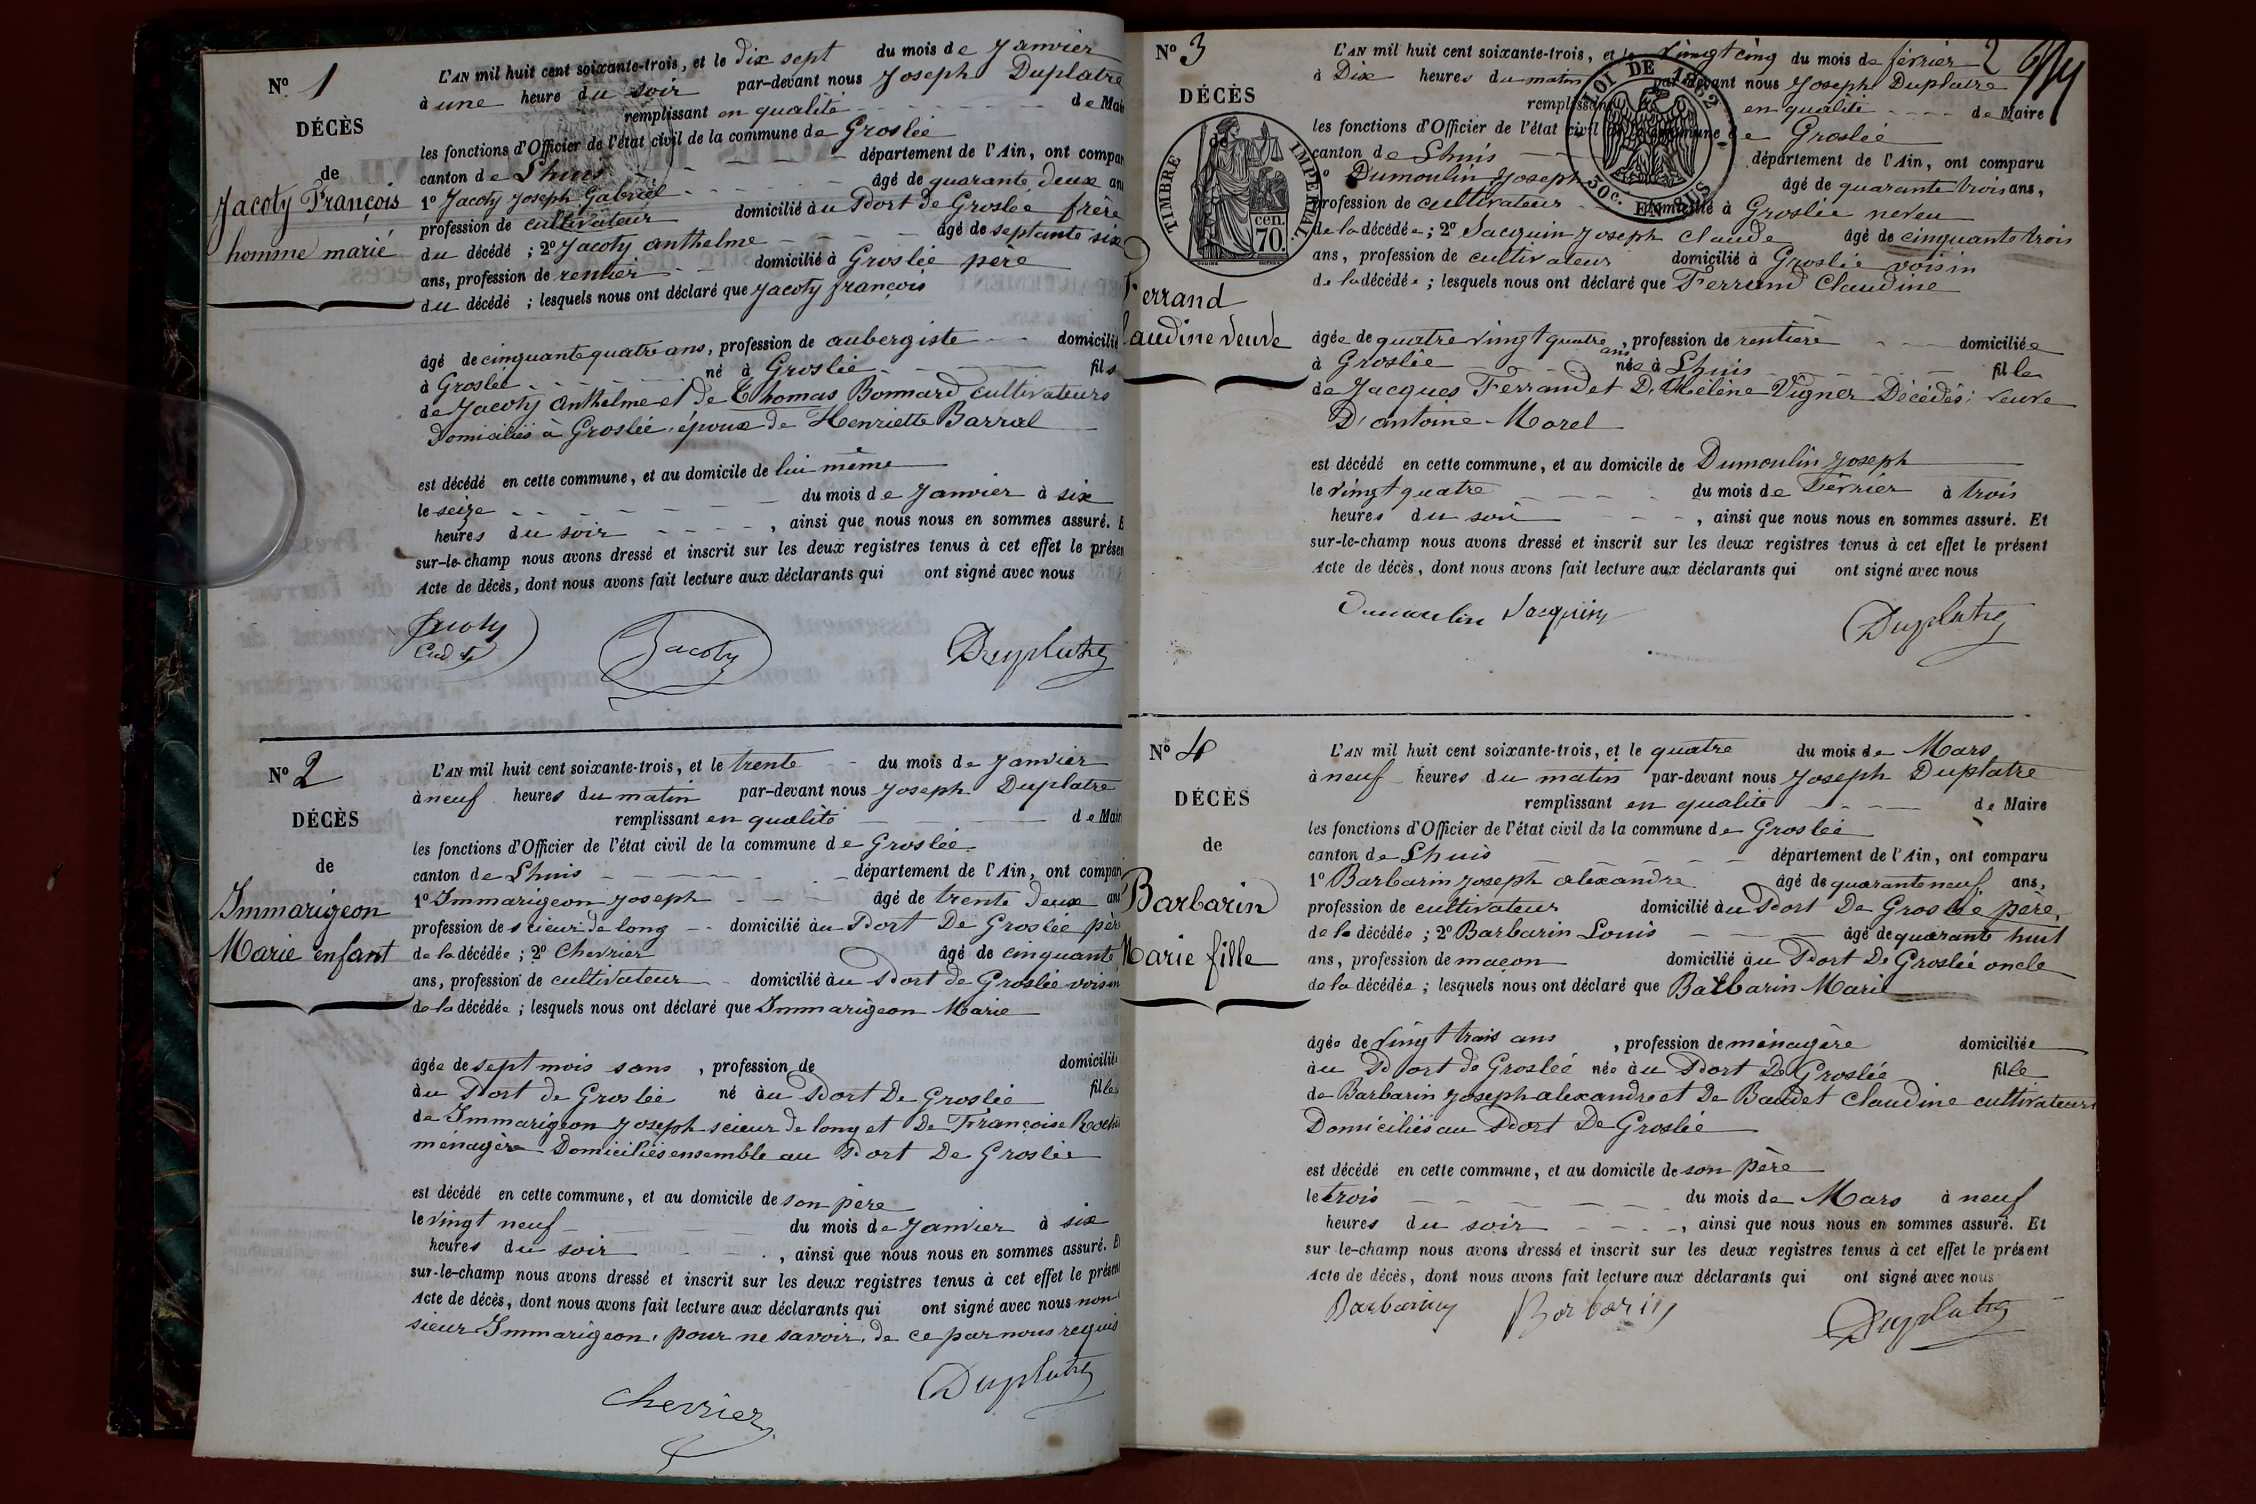 N° 1
DÉCÈS
de
Jacoty François
homme marié
L'AN mil huit cent soixante-trois, et le dix sept du mois de Janvier
à une heure du soir par-devant nous Joseph Duplatre
remplissant en qualité de Mair
les fonctions d'Officier de l'état civil de la commune de Groslée
canton de Lhuis département de l'Ain, ont compar
1° Jacoty Joseph Gabriel âgé de quarante deux an
profession de cultivateur domicilié à u Port de Groslée frère
du décédé ; 2° Jacoty anthelme âgé de septante six
ans, profession de rentier domicilié à Groslée père
du décédé ; lesquels nous ont déclaré que Jacoty françois
âgé de cinquante quatre ans, profession de aubergiste domicilié
à Groslée né à Groslée fils
de Jacoty Anthelme et de Thomas Bonnard cultivateurs
Domiciliés à Groslée, époux de Henriette Barral
est décédé en cette commune, et au domicile de lui même
le seize du mois de Janvier à six
heures du soir , ainsi que nous nous en sommes assuré. E
sur-le-champ nous avons dressé et inscrit sur les deux registres tenus à cet effet le présen
Acte de décès, dont nous avons fait lecture aux déclarants qui ont signé avec nous
Jacoty
Jacoty Duplatre
N° 2
DÉCÈS
de
Immarigeon
Marie enfant
L'AN mil huit cent soixante-trois, et le trente du mois de Janvier
à neuf heures du matin par-devant nous Joseph Duplatre
remplissant en qualité de Mair
les fonctions d'Officier de l'état civil de la commune de Groslée
canton de Lhuis département de l'Ain, ont compar
1° Immarigeon Joseph âgé de trente deux ans
profession de scieur de long domicilié à u Port De Groslée pèr
de la décédée ; 2° Chevrier âgé de cinquante
ans, profession de cultivateur domicilié à u Port de Groslée voisin
de la décédée ; lesquels nous ont déclaré que Immarigeon Marie
âgée de sept mois sans , profession de domicilié
à u Port de Groslée né à u Port De Groslée fille
de Immarigeon Joseph scieur de long et De Françoise
ménagère Domiciliés ensemble au Port De Groslée
est décédé en cette commune, et au domicile de son père
le vingt neuf du mois de Janvier à six
heures du soir , ainsi que nous nous en sommes assuré. E
sur-le-champ nous avons dressé et inscrit sur les deux registres tenus à cet effet le présent
Acte de décès, dont nous avons fait lecture aux déclarants qui ont signé avec nous non
sieur Immarigeon, pour ne savoir, de ce par nous requis
Chevrier Duplatre
2
N° 3
DÉCÈS
TIMBRE IMPÉRIAL.
cen.
70.
LOI DE 1862
30c. EN SUS
Ferrand
Claudine veuve
L'AN mil huit cent soixante-trois, et le vingt cinq du mois de février
à Dix heures du matin par-devant nous Joseph Duplatre
remplissant en qualité de Maire
les fonctions d'Officier de l'état civil de la commune de Groslée
canton de Lhuis département de l'Ain, ont comparu
1° Dumoulin Joseph âgé de quarante trois ans,
profession de cultivateur domicilié à Groslée neveu
de la décédée ; 2° Jacquin Joseph Claude âgé de cinquante trois
ans, profession de cultivateur domicilié à Groslée voisin
de la décédée ; lesquels nous ont déclaré que Ferrand Claudine
âgée de quatre vingt quatre ans , profession de rentière domiciliée
à Groslée née à Lhuis fille
de Jacques Ferrand et D'Hélène Vigner Décédés ; veuve
D'antoine Morel
est décédé en cette commune, et au domicile de Dumoulin Joseph
le vingt quatre du mois de Février à trois
heures du soir , ainsi que nous nous en sommes assuré. Et
sur-le-champ nous avons dressé et inscrit sur les deux registres tenus à cet effet le présent
Acte de décès, dont nous avons fait lecture aux déclarants qui ont signé avec nous
Dumoulin Jacquin Duplatre
N° 4
DÉCÈS
de
Barbarin
Marie fille
L'AN mil huit cent soixante-trois, et le quatre du mois de Mars
à neuf heures du matin par-devant nous Joseph Duplatre
remplissant en qualité de Maire
les fonctions d'Officier de l'état civil de la commune de Groslée
canton de Lhuis département de l'Ain, ont comparu
1° Barbarin Joseph alexandre âgé de quarante neuf ans,
profession de cultivateur domicilié à u Port De Groslée père,
de la décédée ; 2° Barbarin Louis âgé de quarante huit
ans, profession de maçon domicilié à u Port De Groslée oncle
de la décédée ; lesquels nous ont déclaré que Barbarin Marie
âgée de vingt trois ans , profession de ménagère domiciliée
à u Port de Groslée née à u Port De Groslée fille
de Barbarin Joseph alexandre et De Baudet Claudine cultivateurs
Domiciliés au Port De Groslée
est décédé en cette commune, et au domicile de son père
le trois du mois de Mars à neuf
heures du soir , ainsi que nous nous en sommes assuré. Et
sur-le-champ nous avons dressé et inscrit sur les deux registres tenus à cet effet le présent
Acte de décès, dont nous avons fait lecture aux déclarants qui ont signé avec nous
Barbarin Barbarin Duplatre